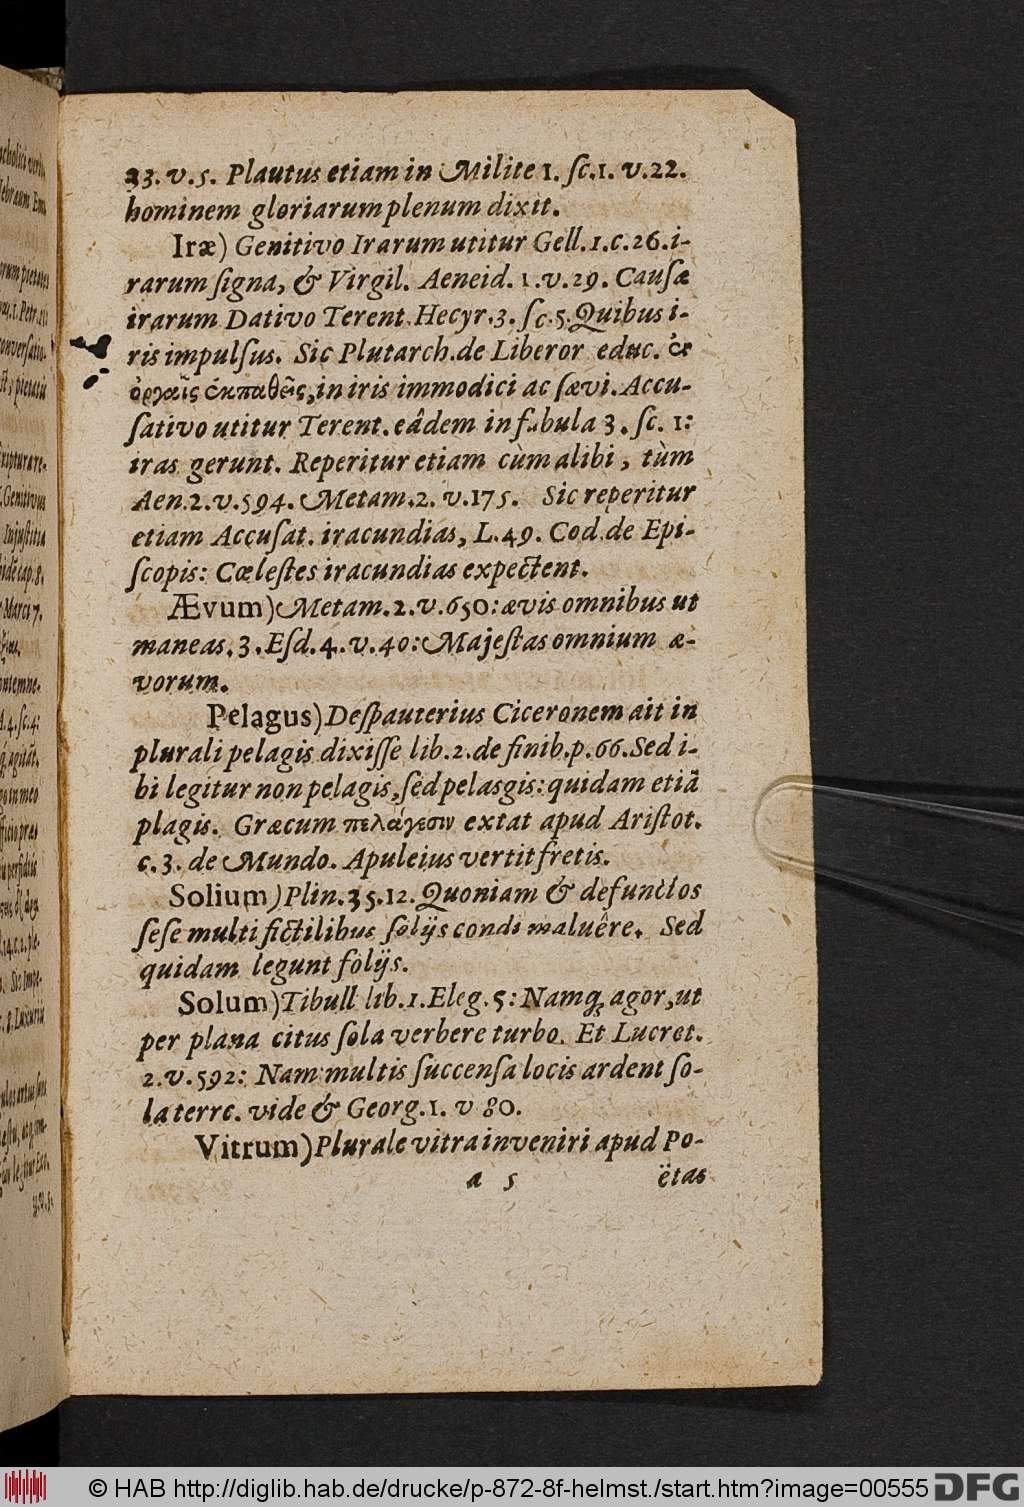 23. v. 5. Plautus etiam in Milite 1. ſc.1. v.22.
hominem gloriarum plenum dixit.
Iræ) Genitivo Irarum utitur Gell. 1.c.26. i-
rarum ſigna, & Virgil. Aeneid. 1. v. 29. Cauſæ
irarum Dativo Terent. Hecyr. 3. ſc. 5. Quibus i-
ris impulſus. Sic Plutarch. de Liberor educ. ἐν
ὀργαῖς ἐκπαθεῖς, in iris immodici ac ſævi. Accu-
ſativo utitur Terent. eâdem in fabula 3. ſc. 1:
iras gerunt. Reperitur etiam cùm alibi, tùm
Aen. 2. v. 594. Metam. 2. v. 175. Sic reperitur
etiam Accuſat. iracundias, L. 49. Cod. de Epi-
ſcopis: Cœleſtes iracundias expectent.
Ævum) Metam. 2. v. 650: ævis omnibus ut
maneas. 3. Eſd. 4. v. 40: Majeſtas omnium æ-
vorum.
Pelagus) Deſpauterius Ciceronem ait in
plurali pelagis dixiſſe lib. 2. de finib. p. 66. Sed i-
bi legitur non pelagis, ſed pelasgis: quidam etiã
plagis. Græcum πελάγεσιν extat apud Ariſtot.
c. 3. de Mundo. Apuleius vertit fretis.
Solium) Plin. 35. 12. Quoniam & defunctos
ſeſe multi fictilibus ſolijs condi maluêre. Sed
quidam legunt folijs.
Solum) Tibull lib. 1. Eleg. 5: Namq; agor, ut
per plana citus ſola verbere turbo. Et Lucret.
2. v. 592: Nam multis ſuccenſa locis ardent ſo-
la terrę. vide & Georg. 1. v 80.
Vitrum) Plurale vitra inveniri apud Po-
a 5 ëtas
© HAB http://diglib.hab.de/drucke/p-872-8f-helmst./start.htm?image=00555 DFG